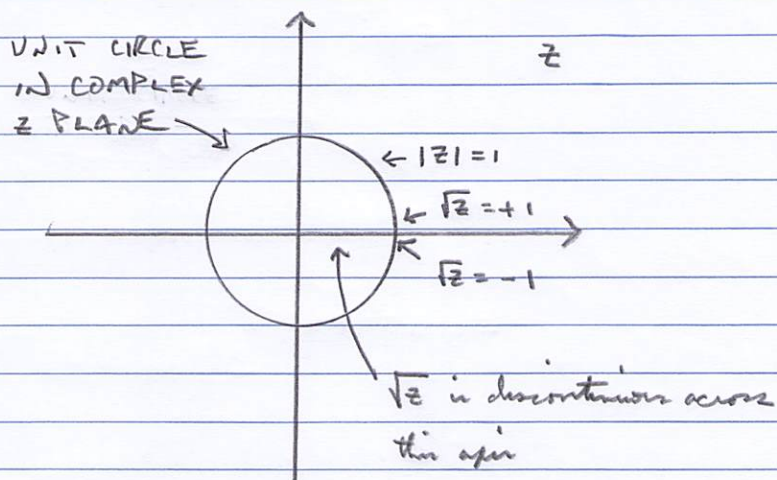 UNIT CIRCLE
IN COMPLEX
Z PLANE
z
|z| = 1
√z = +1
√z = -1
√z is discontinuous across
this axis